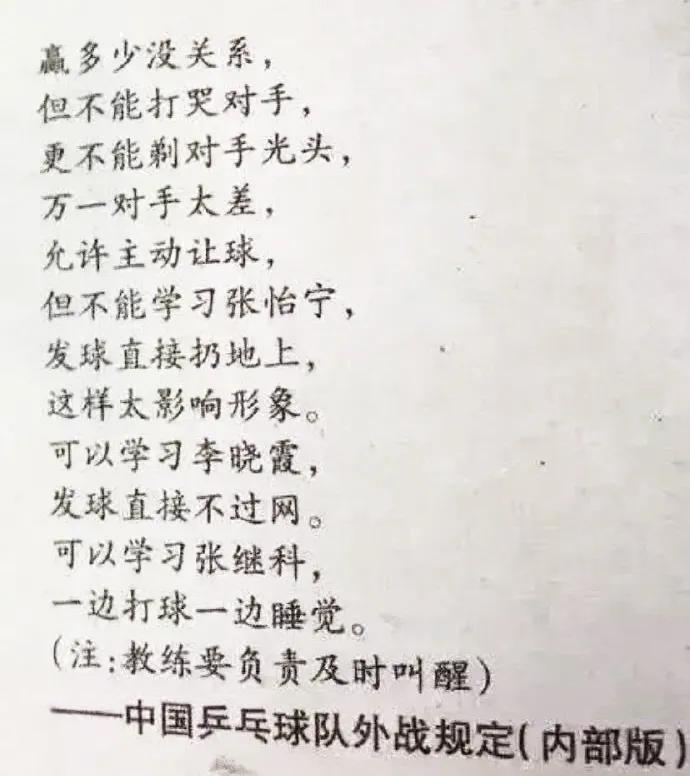 赢多少没关系，
但不能打哭对手，
更不能剃对手光头，
万一对手太差，
允许主动让球，
但不能学习张怡宁，
发球直接扔地上，
这样太影响形象。
可以学习李晓霞，
发球直接不过网。
可以学习张继科，
一边打球一边睡觉。
(注:教练要负责及时叫醒)
——中国乒乓球队外战规定(内部版)